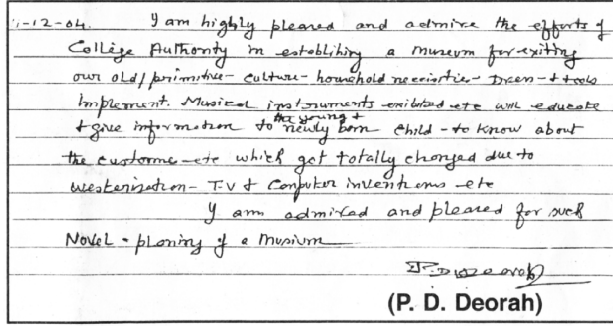 1-12-04. I am highly pleared and admire the efforts of
College Authority in establihing a museum for exiting
our old/primitive- culture- household neccisties- Dreen- & tools
Implement. Musical instruments exibited etc will educate
the young &
& give information to newly born child - to know about
the custome-etc which got totally changed due to
westerization- T.V & Computer inventions -etc
I am admired and pleared for such
Novel - planing of a musium
P. D. Deorah
(P. D. Deorah)